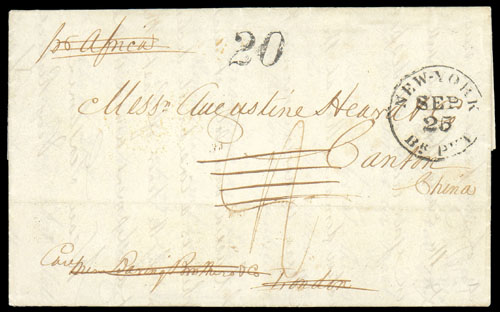 pr Africa
20
NEW-YORK
SEP
25
Br. PKT
Messrs Augustine Heard
Canton
China
Care
Baring Brothers & Co
London